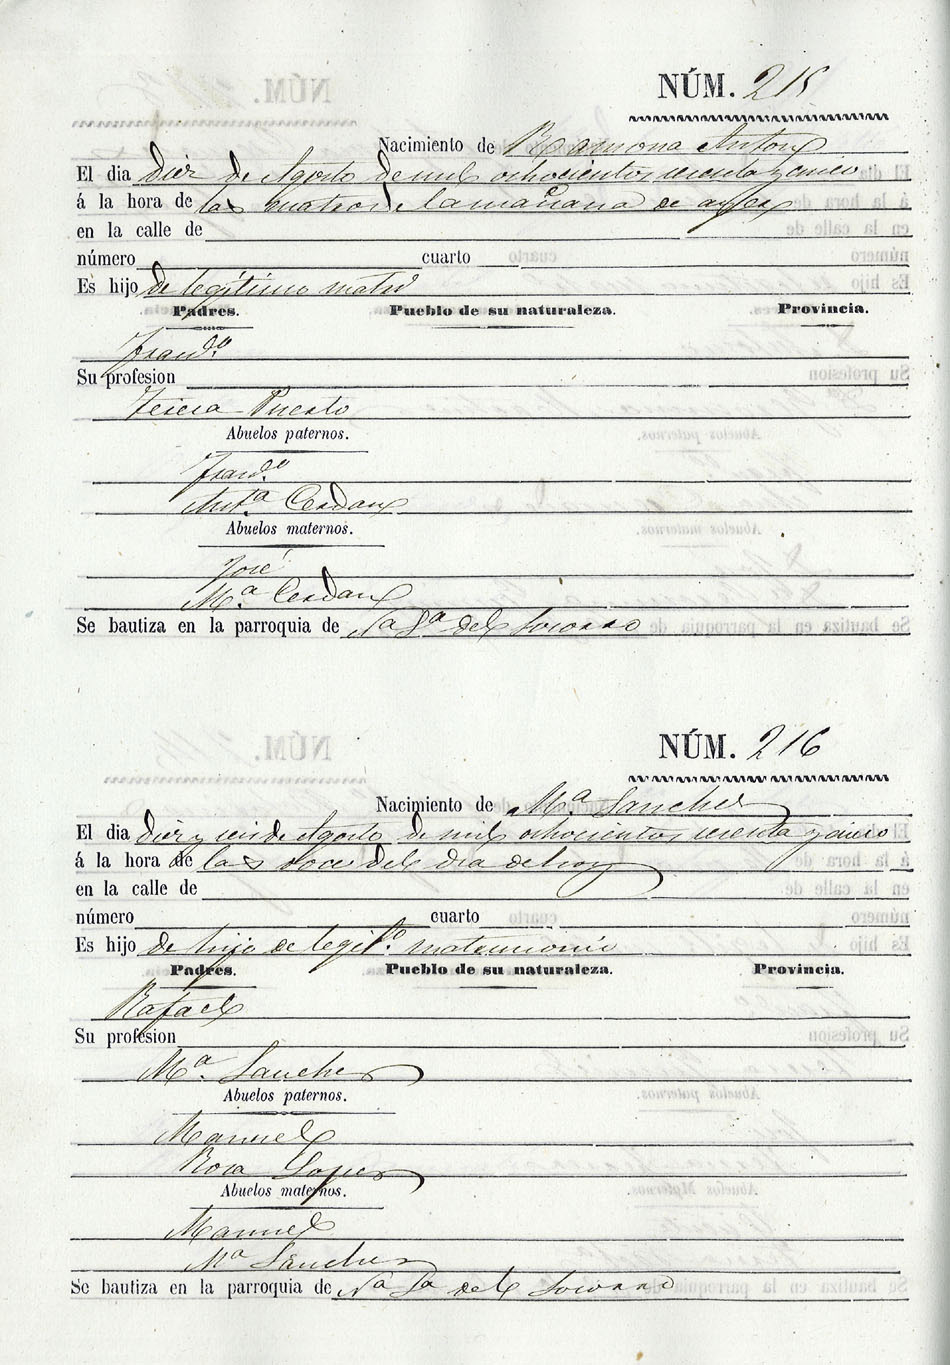 NÚM. 215
Nacimiento de Ramona Anton
El dia diez de Agosto de mil ochocientos sesenta y cinco
á la hora de las cuatro de la mañana de ayer
en la calle de
número cuarto
Es hijo de legítimo matrio
Padres. Pueblo de su naturaleza. Provincia.
Franco
Su profesion
Teresa Puerto
Abuelos paternos.
Franco
Anta Cerdan
Abuelos maternos.
José
Ma Cerdan
Se bautiza en la parroquia de Na Sa del Socorro
NÚM. 216
Nacimiento de Ma Sanchez
El dia diez y seis de Agosto de mil ochocientos sesenta y cinco
á la hora de las doce del dia de hoy
en la calle de
número cuarto
Es hijo de hijo de legitmo matrimonio
Padres. Pueblo de su naturaleza. Provincia.
Rafael
Su profesion
Ma. Sanchez
Abuelos paternos.
Manuel
Rosa Lopez
Abuelos maternos.
Manuel
Ma Sanchez
Se bautiza en la parroquia de Na Sa del Socorro